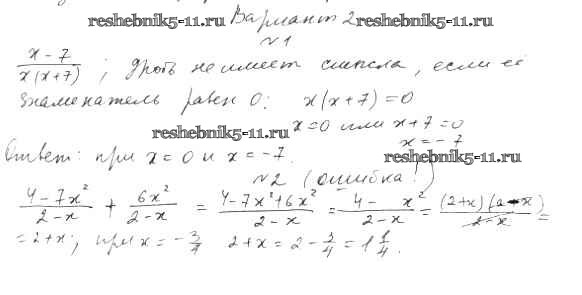 reshebnik5-11.ru Вариант 2 reshebnik5-11.ru
№1
x-7/x(x+7) ; дробь не имеет смысла, если её
знаменатель равен 0: x(x+7)=0
reshebnik5-11.ru x=0 или x+7=0
x=-7
Ответ: при x=0 и x=-7. reshebnik5-11.ru
№2 (ошибка!)
4-7x²/2-x + 6x²/2-x = 4-7x²+6x²/2-x = 4- x²/2-x = (2+x)(2-x)/2-x =
=2+x; при x=-3/4 2+x=2-3/4=1 1/4.